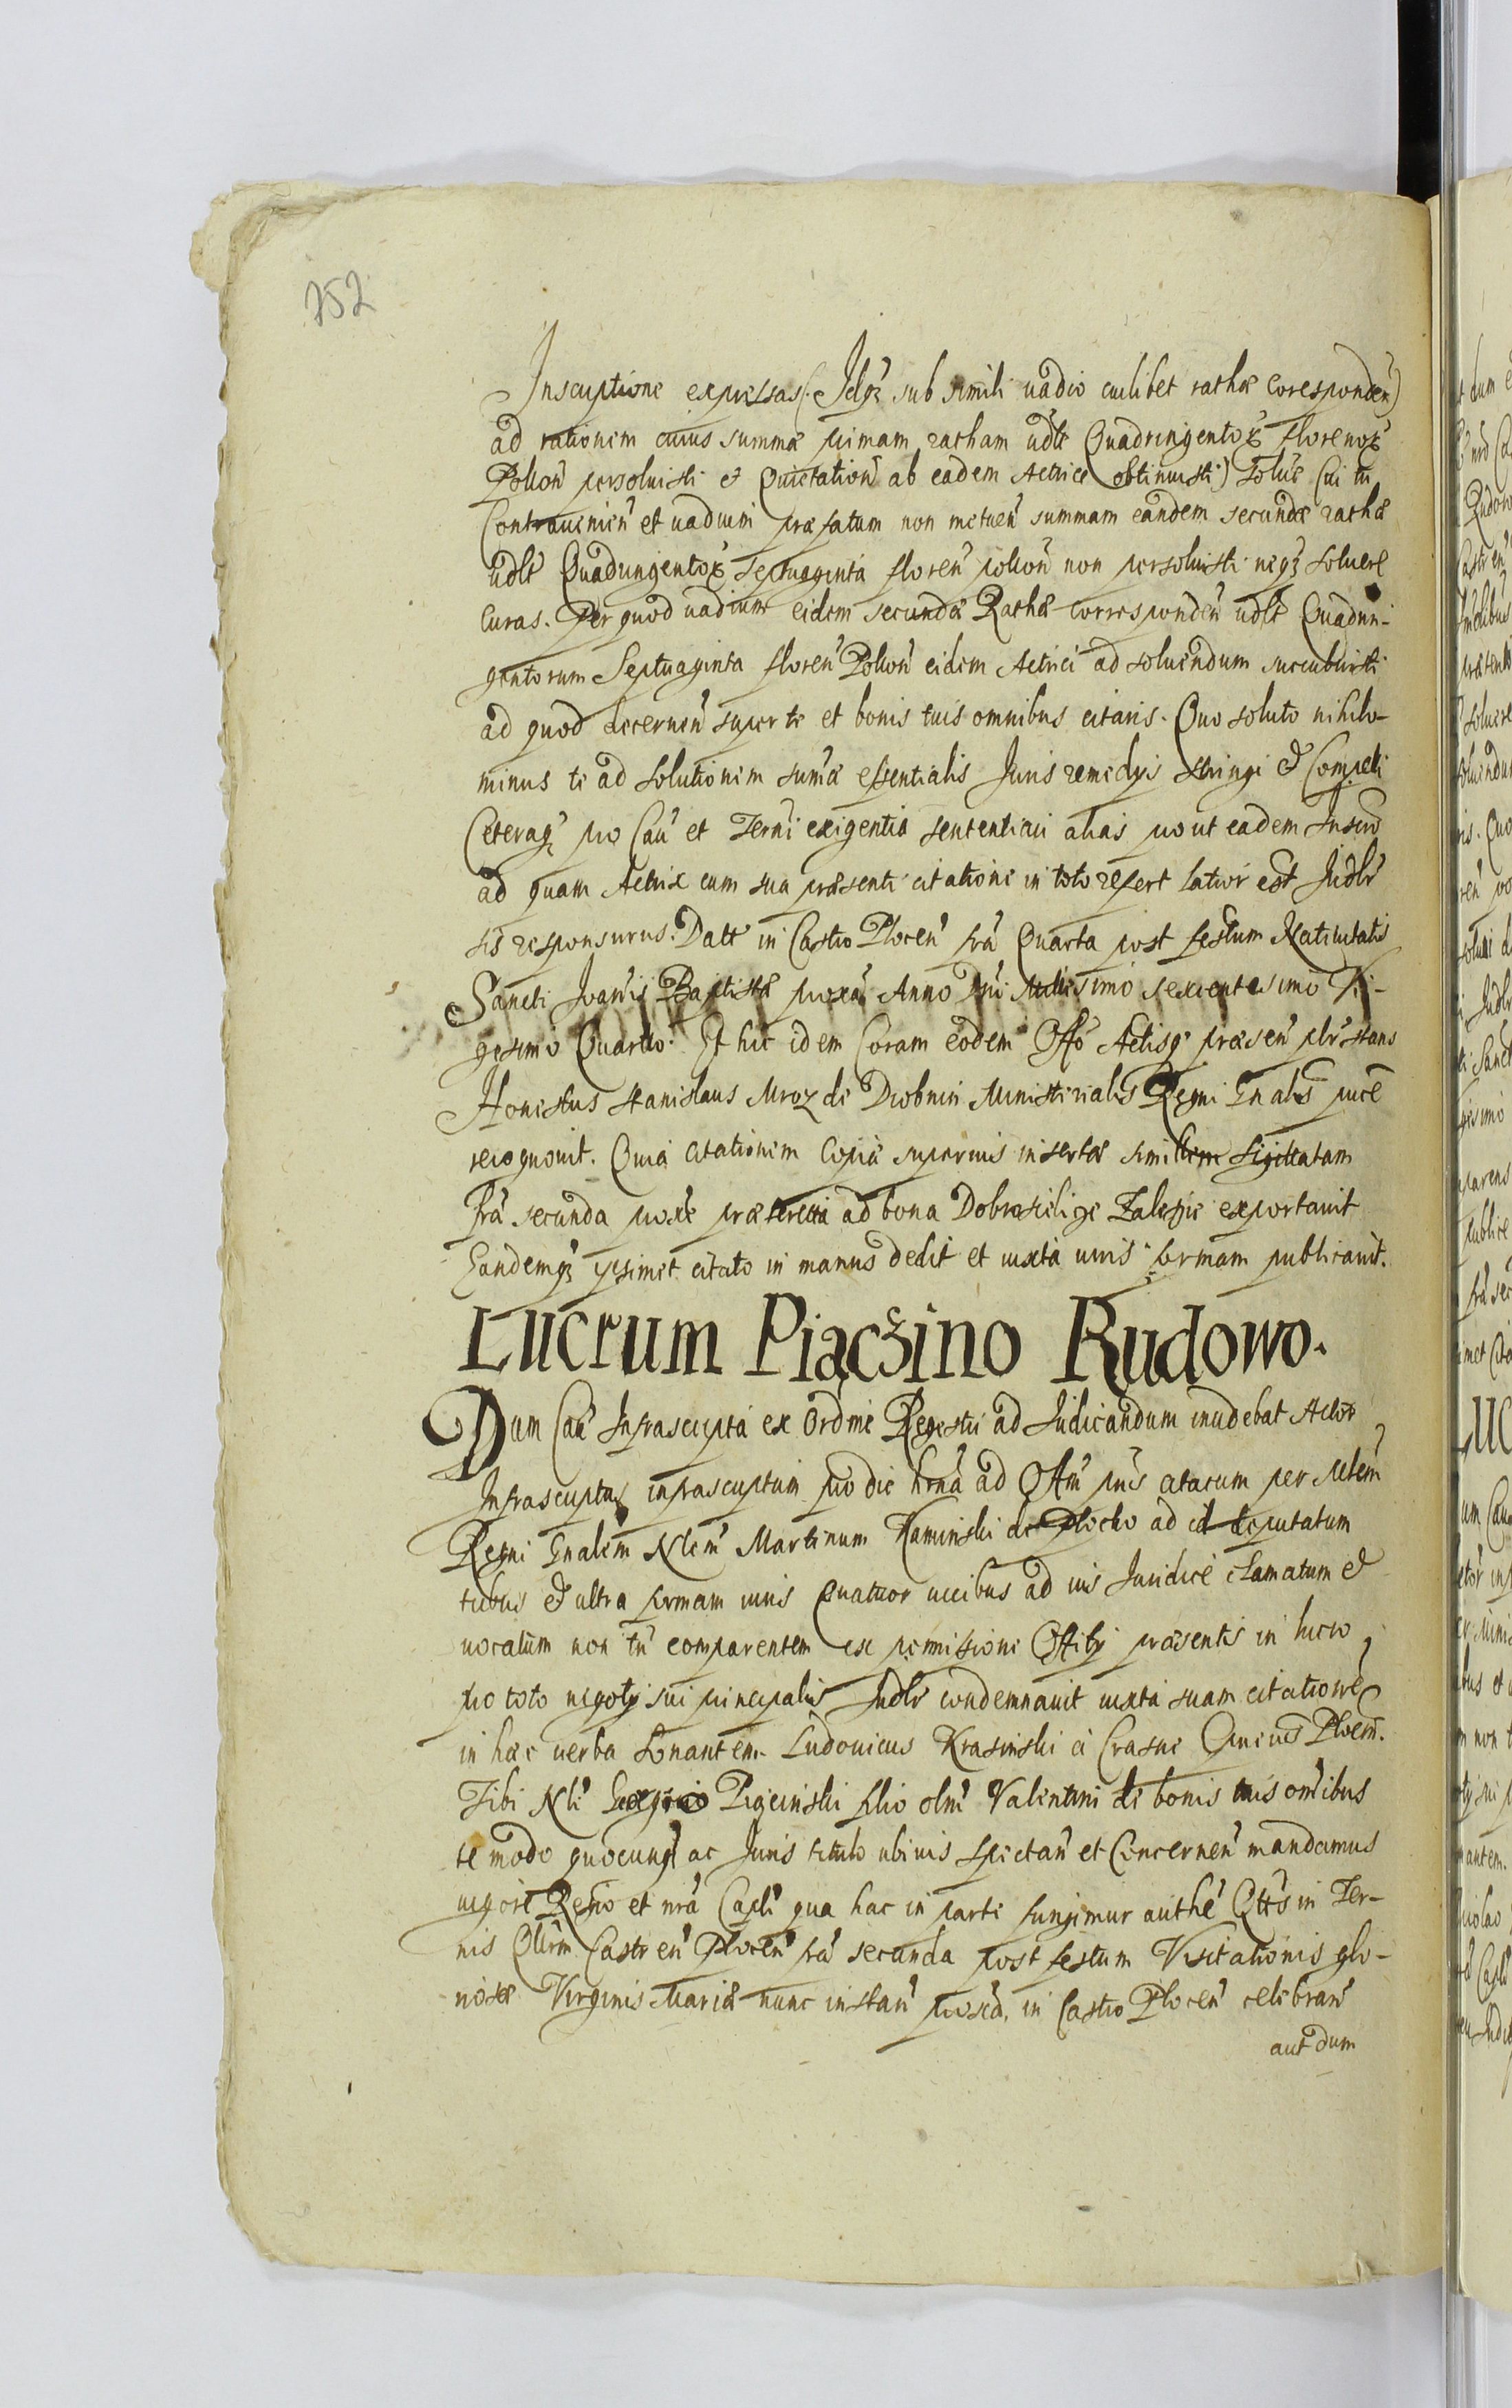 252
Inscriptione expressas (Idq₃ sub simili uadio cuilibet rathæ coresponden̄)
ad rationem cuius summæ primam ratham udlt Quadringentoꝝ florenoꝝ
Polłon̄ persoluisti et Quietation̄ ab eadem Actrice obtinuisti) soluē Cui tu
Contrauenien̄ et uadium præfatum non metuen̄ summam eandem secundæ rathæ
udlt Quadringentoꝝ septuaginta floren̄ polłon̄ non persoluisti neq₃ soluere
curas. Per quod uadium eidem secundæ Rathæ corresponden̄ udlt Quadrin-
gentorum Septuaginta floren̄ Polłon̄ eidem Actrici ad soluendum succubuisti
ad quod decernen̄ super te et bonis tuis omnibus citaris. Quo soluto nihilo-
minus te ad solutionem sum̄æ essentialis Juris remedijs stringi et Compelli
Ceteraq₃ pro Cau̅ et Terni exigentia sententiari alias prout eadem Inscrō
ad quam Actrix cum sua præsenti citatione in toto refert latior est Judłr
sis responsurus. Datt in Castro Plocen̄ frā Quarta post festum Natiuitatis
Sancti Joan̄is Baptistæ proxā Anno Dn̄i Millesimo sexcentesimo Vi-
gesimo Quarto. Et hic idem Coram eodem Offō Actisq₃ præsen̄ płr stans
Honestus Stanislaus Mroz de Drobnin Ministerialis Regni Gnalis pucē
recognouit. Quia citationem copiæ superius insertæ similem sigillatam
frā secunda proxe præterita ad bona Dobrosielice Zalesie exportauit
Eandemq₃ ipsimet citato in manus dedit et iuxta iuris formam publicauit.
Lucrum Piączino Rudowo.
Dum Cau̅ Infrascripta ex ordine Regestri ad Iudicandum incidebat Actor
Infrascriptus infrascriptum pro die hrnā ad Offm pn̄s citatum per Mlem̄
Regni Gnalem Nlem̄ Martinum Kaminski de Plocko ad id deputatum
tribus et ultra formam iuris Quatuor uicibus ad ius Juridice clamatum et
uocatum non tn̄ comparentem ex permissione Offitij præsentis in lucro
pro toto negotij sui principalis Judłr condemnauit iuxta suam citationē
in hæc uerba sonantem. Ludouicus Krasinski a Crasne Capneus Plocen̄.
Tibi Nli Piącinski filio olm̄ Valentini de bonis tuis om̄ibus
te modo quocunq₃ ac Juris titulo ubiuis spectan̄ et concernen̄ mandamus
uigore Regio et nrā Capli qua hac in parte fungimur authē Qtts in Ter-
nis Qllrm Castren̄ Plocen̄ frā secunda post festum Visitationis glo-
riosæ Virginis Mariæ nunc instan̄ proxā in Castro Plocen̄ celebran̄
aut dum